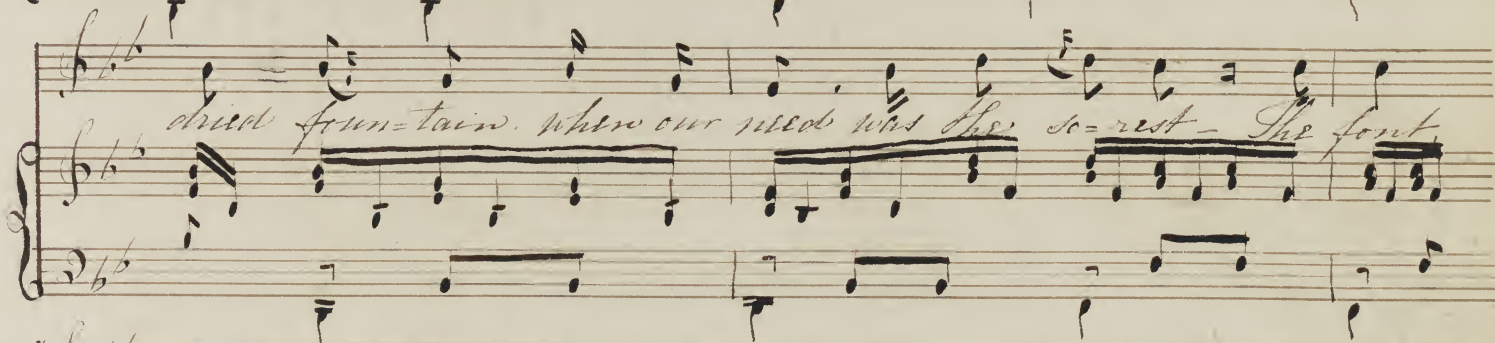 dried foun=tain. when our need was the so=rest - The font